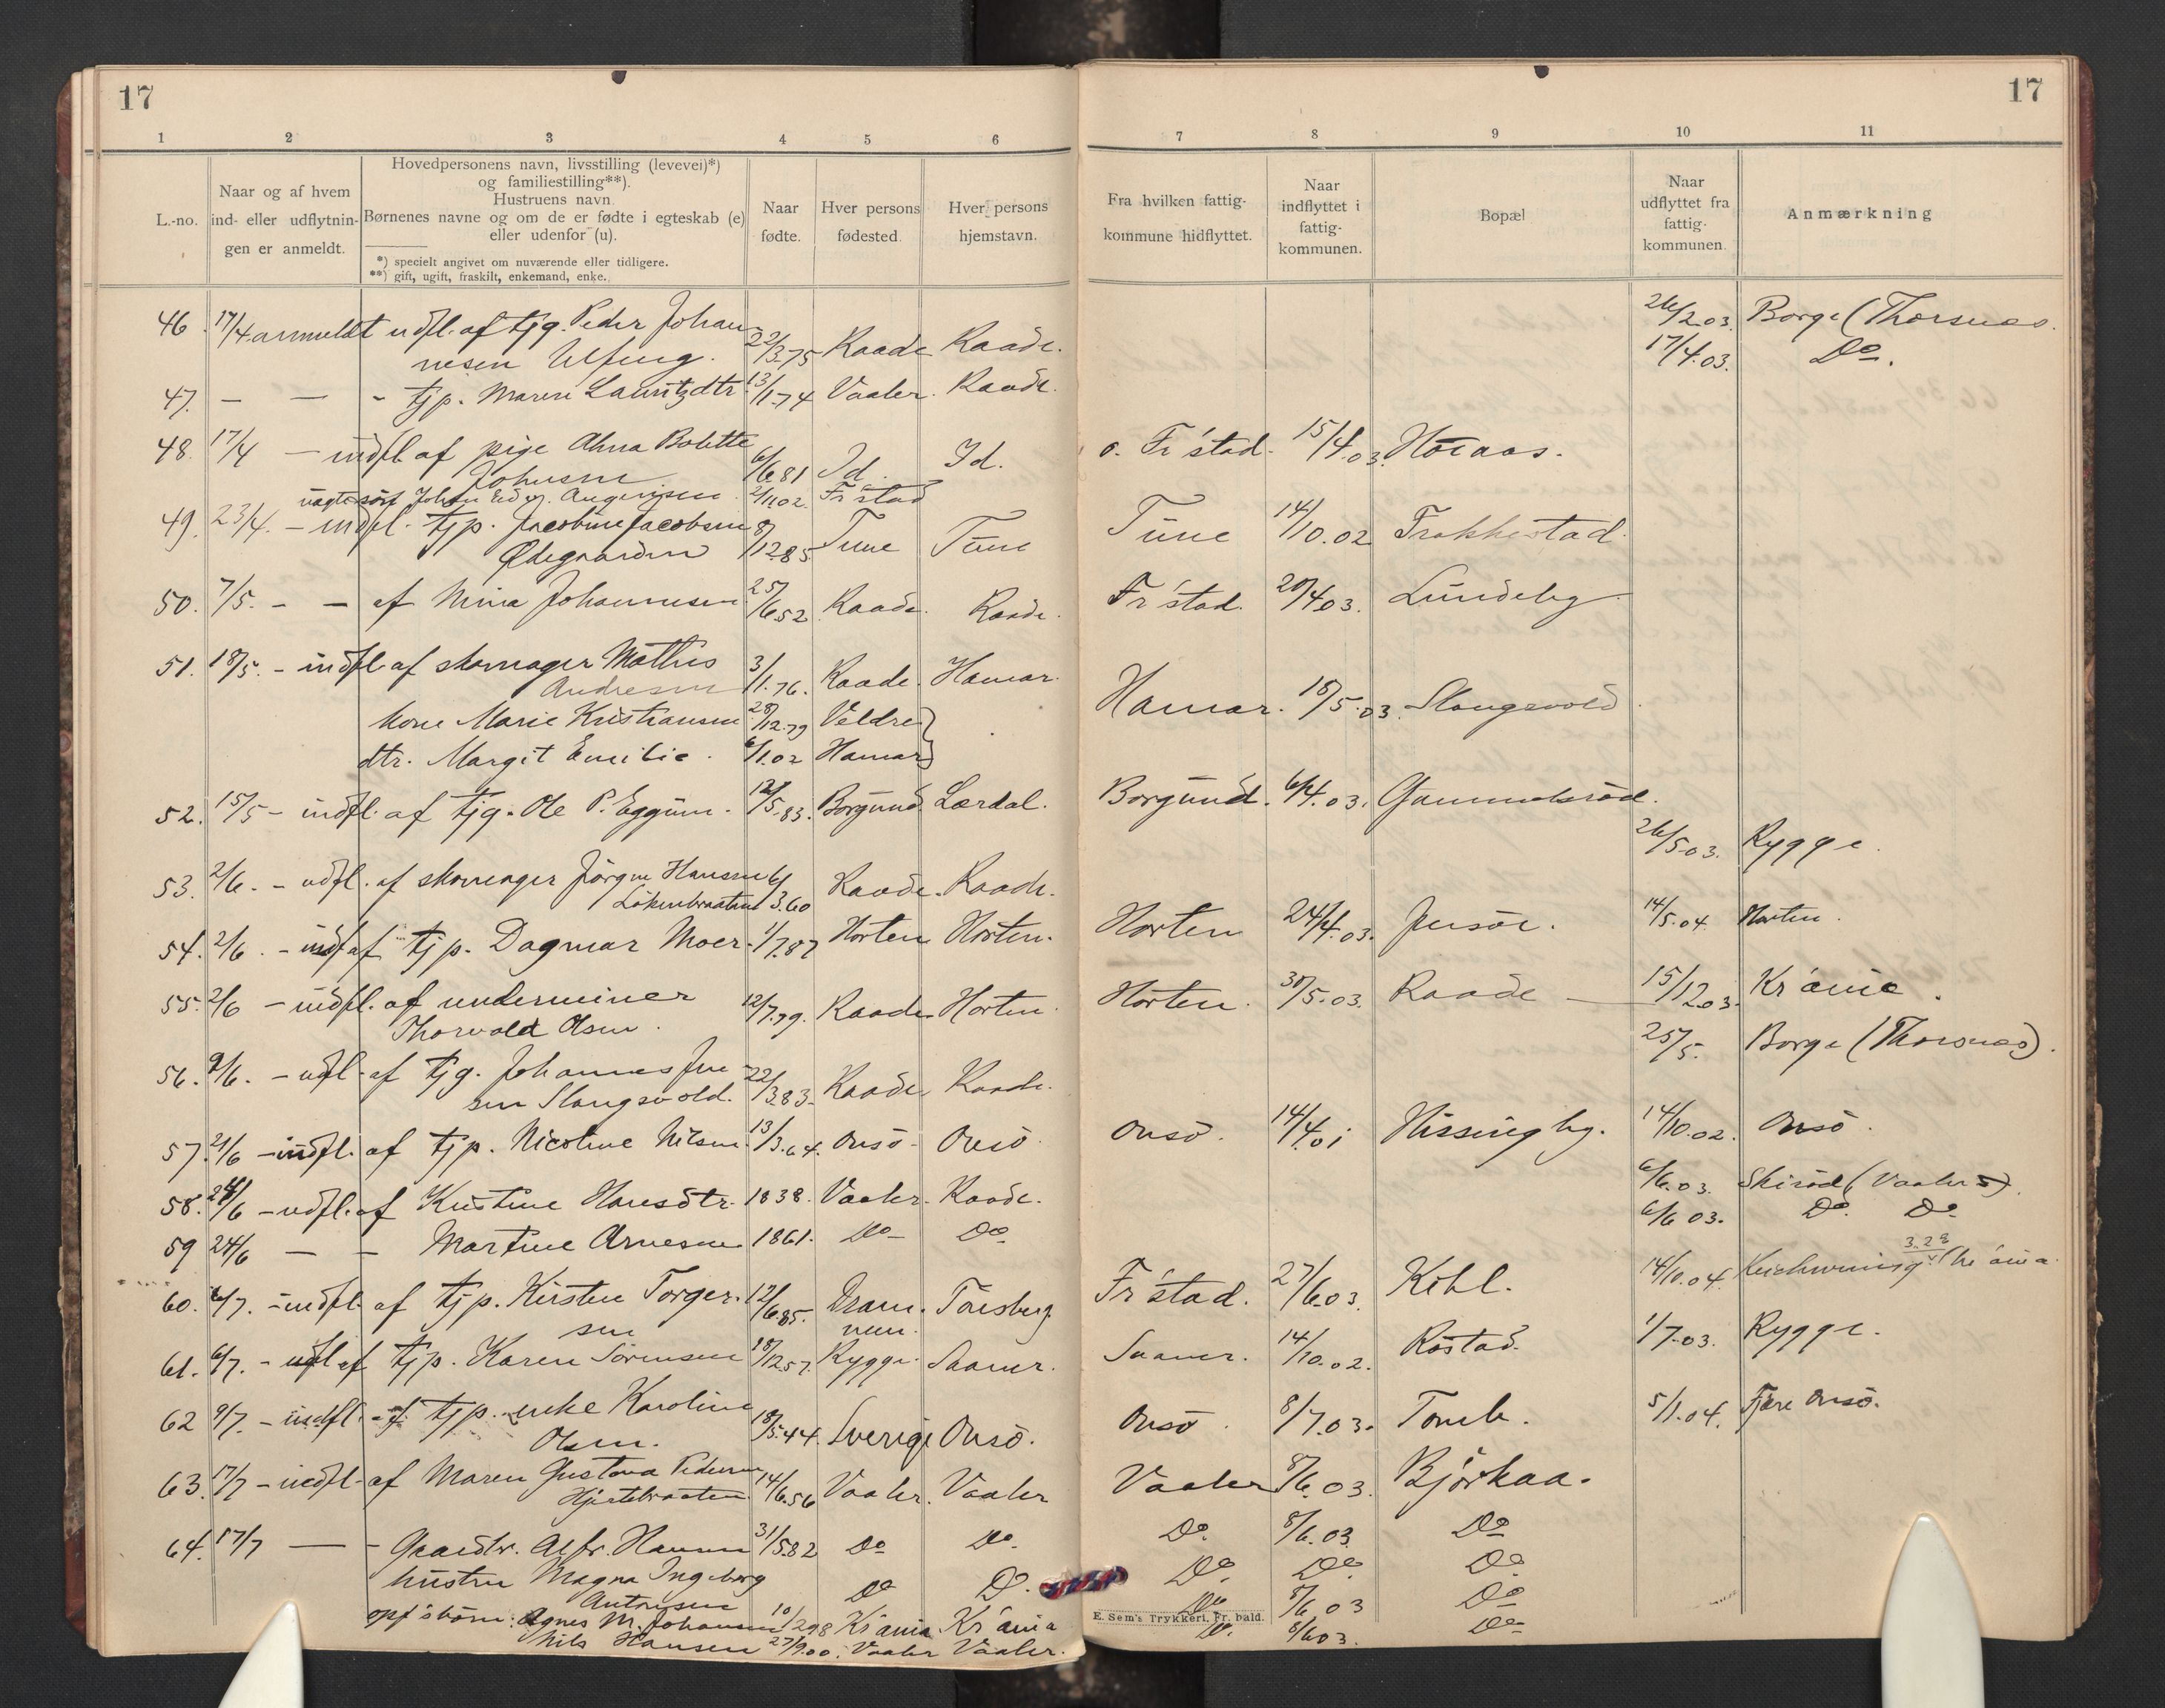 17
17
1 2 3 4 5 6 7 8 9 10 11
L.-no.
Naar og af hvem
ind- eller udflytnin-
gen er anmeldt.
Hovedpersonens navn, livsstilling (levevei)*)
og familiestilling**).
Hustruens navn.
Børnenes navne og om de er fødte i egteskab (e)
eller udenfor (u).
*) specielt angivet om nuværende eller tidligere.
**) gift, ugift, fraskilt, enkemand, enke.
Naar
fødte.
Hver persons
fødested.
Hver persons
hjemstavn.
Fra hvilken fattig-
kommune hidflyttet.
Naar
indflyttet i
fattig-
kommunen.
Bopæl
Naar
udflyttet fra
fattig-
kommunen.
Anmærkning
46. 17/4 anmeldt udfl. af tjg. Peder Johan- 26/2.03. Borge (Thorsnæs.
nesen Ulfeng. 22/3.75 Raade Raade. 17/4.03. Do.
47. — — - tjp. Maren Lauritzdtr. 13/1.74 Vaaler. Raade.
48. 17/4 — indfl. af pige Alma Bolette o. Fr'stad. 15/4.03.
Johnsen 6/6.81 Id. Id.
2/11.02. Fr'stad
49. 23/4. — indfl. tjp. Jacobine Jacobsen 8/12.85 Tune Tune Tune 14/10.02 Frokkestad.
Ødegaarden
50. 7/5. - — af Mina Johannesen 25/6.52 Raade. Raade. Fr'stad. 20/4.03. Lundeby
51. 18/5. - indfl. af skomager Mathis 3/1.76. Raade. Hamar. Hamar. 18/5.03. Slangsvold
Andresen
kone Marie Kristiansen 28/12.79 Veldre
dtr. Margit Emilie. 6/1.02 Hamar
52. 15/5 - indfl. af tjg. Ole P. Eggum. 12/5.83. Borgund. Lærdal. Borgund. 6/4.03. Gammelsrød.
26/5.03. Rygge.
53. 2/6. - udfl. af skomager Jörgen Hansen 6/3.60 Raade. Raade.
Løkenbraaten
54. 2/6. - indf af tjp. Dagmar Moer. 1/7.87 Horten Horten. Horten 24/4.03. Jensøe. 14/5.04. Horten.
55. 2/6 - indfl. af underminer 12/7.79. Raade Horten. Horten. 30/5.03. Raade — 15/12.03. Kr'ania.
Thorvald Olsen.
25/5. Borge (Thorsnæs).
56. 9/6. - udfl. af tjg. Johannes Jen- 22/3.83. Raade Raade.
sen Slangsvold.
57. 21/6 - indfl. af tjp. Nicoline Nilsen. 13/3.64. Onsö. Onsö. Onsö. 14/4.01 Hissingby. 14/10.02. Onsö.
58. 24/6 - udfl. af Kristine Hansdtr. 1838. Vaaler. Raade. 6/6.03. Skirød (Vaaler).
59 24/6 — — Martine Arnesen 1861. Do Do 6/6 03. Do. Do
3.28
60. 6/7. - indfl. af tjp. Kirsten Torger- 12/6.85. Dram- Tönsberg. Fr'stad. 27/6.03. Kihl. 14/10.04.
sen men.
61. 6/7. - udfl af tjp. Karen Sörensen 18/12.57. Rygge. Saaner. Saaner. 14/10.02. Röstad. 1/7.03. Rygge.
62 9/7. - indfl. af tjp. enke Karoline 18/5.44. Sverige Onsö. Onsö. 8/7.03. Tomb. 5/1.04. Fjære Onsö.
Olsen.
63. 17/7 - indfl. af Maren Gustava Pedersen 14/6.56 Vaaler. Vaaler Vaaler 8/6.03. Björkaa.
Hjertebraaten
64. 17/7 — - Gaardbr. Alfr. Hansen 31/5.82 Do Do. Do. 8/6.03. Do
hustru Magna Ingeborg Do D. Do. Do. Do.
Antonsen
opf'sbørn: Agnes M. Johansen 10/2.98 Kr'ania. Kr'ania Do 8/6.03 Do
Nils Hansen 27/9.00. Vaaler Vaaler. Do. 8/6.03. Do
E. Sem's Trykkeri, Fr. hald.